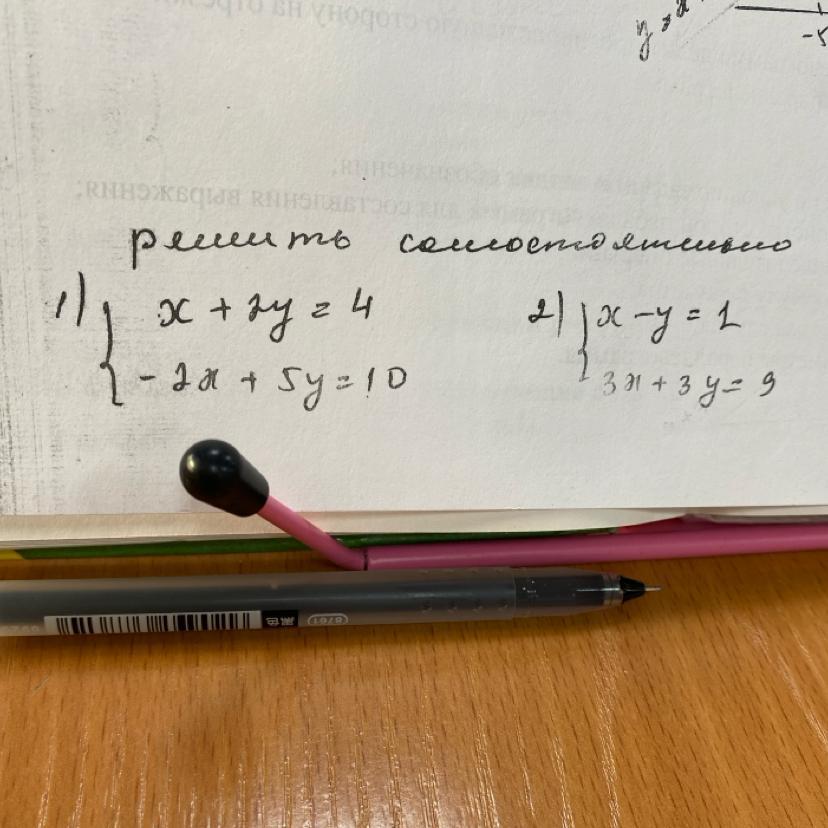 решить самостоятельно
1) { x + 2y = 4
-2x + 5y = 10
2) { x - y = 1
3x + 3y = 9
-5
8761